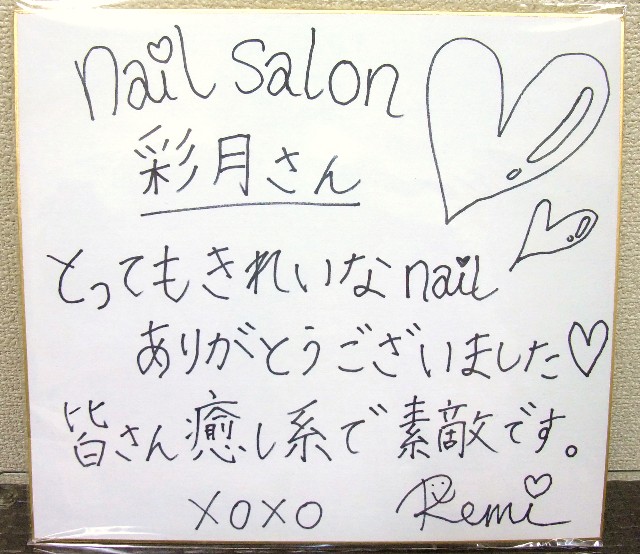 nail salon
彩月さん
とってもきれいなnail
ありがとうございました♡
皆さん癒し系で素敵です。
xoxo Remi